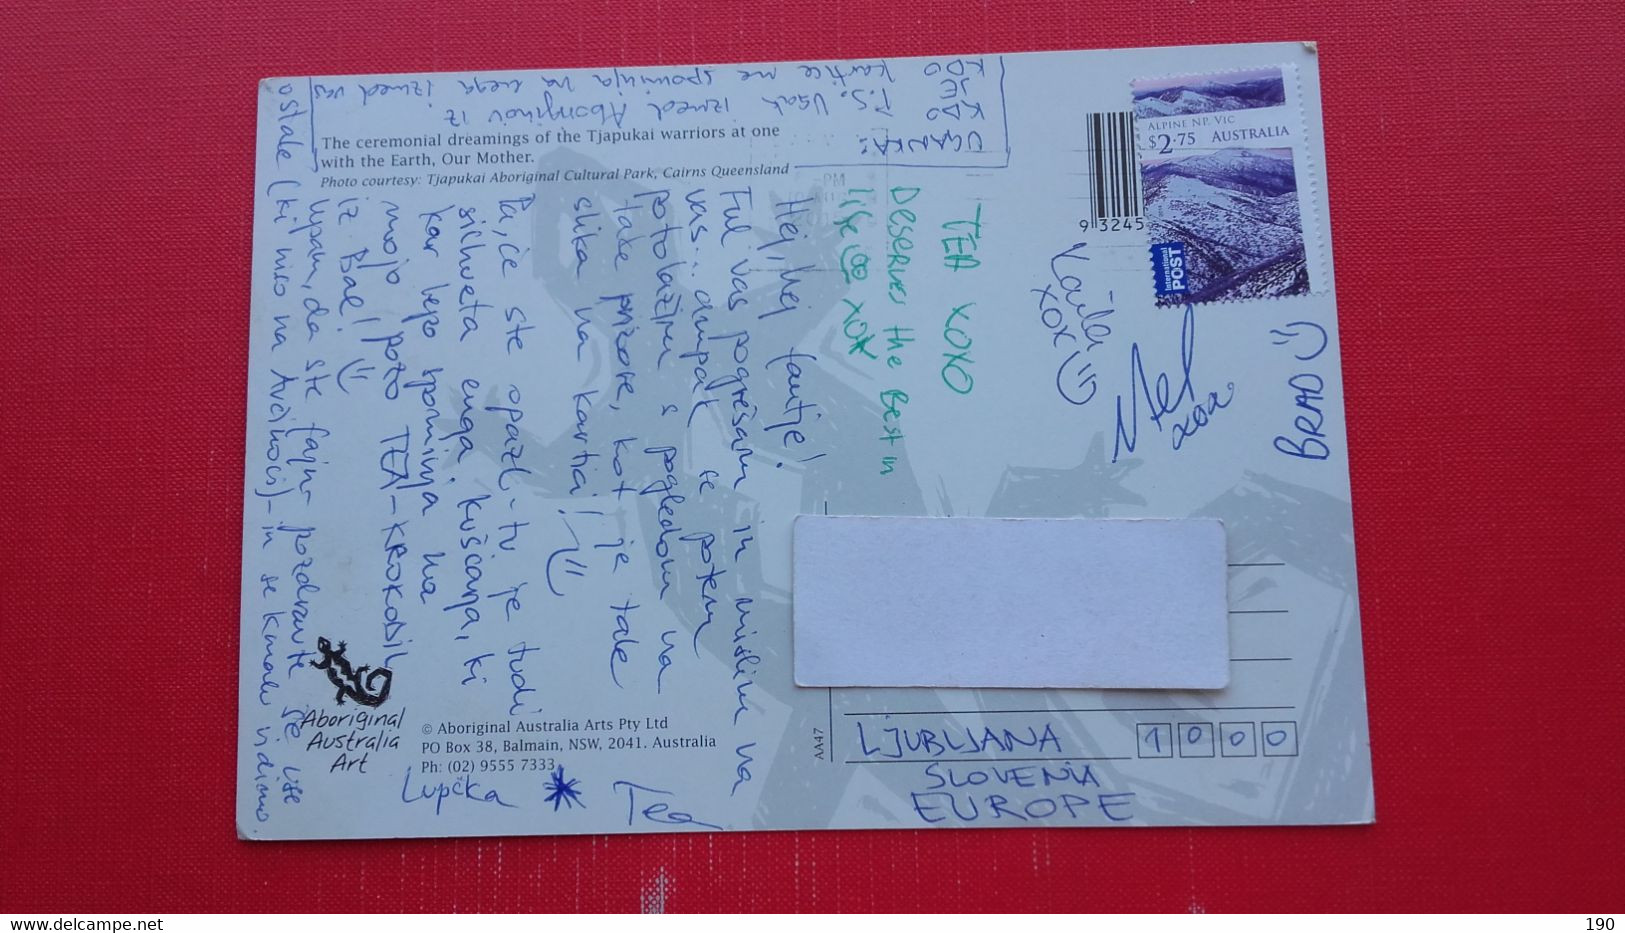 The ceremonial dreamings of the Tjapukai warriors at one
with the Earth, Our Mother.
Photo courtesy: Tjapukai Aboriginal Cultural Park, Cairns Queensland
Hej, hej fantje!
Ful vas pogrešam in mislim na
vas... ampak se potem
potolažim s pogledom na
take prizore, kot je tale
slika na kartici!
Pa, če ste opazli - tu je tudi
silhueta enga kuščarja, ki
kar lepo spominja na
mojo pozo TEA-KROKODIL
iz Bal!
Upam, da ste fajn - pozdravite še vse
ostale (ki niso na ) - in se kmalu vidimo.
Lupčka
Tea
UGANKA:
KDO
JE
KDO
P.S. Vsak izmed Aboriginov iz
kartice me spominja na enega izmed vas
TEA XOXO
Deserves the Best in
life XOX
XOX
xoa
BRAD
ALPINE NP, VIC
$2.75 AUSTRALIA
International
POST
9 3245
PM
Aboriginal
Australia
Art
© Aboriginal Australia Arts Pty Ltd
PO Box 38, Balmain, NSW, 2041. Australia
Ph: (02) 9555 7333
AA47
LJUBLJANA 1000
SLOVENIA
EUROPE
190
delcampe.net
KmetH